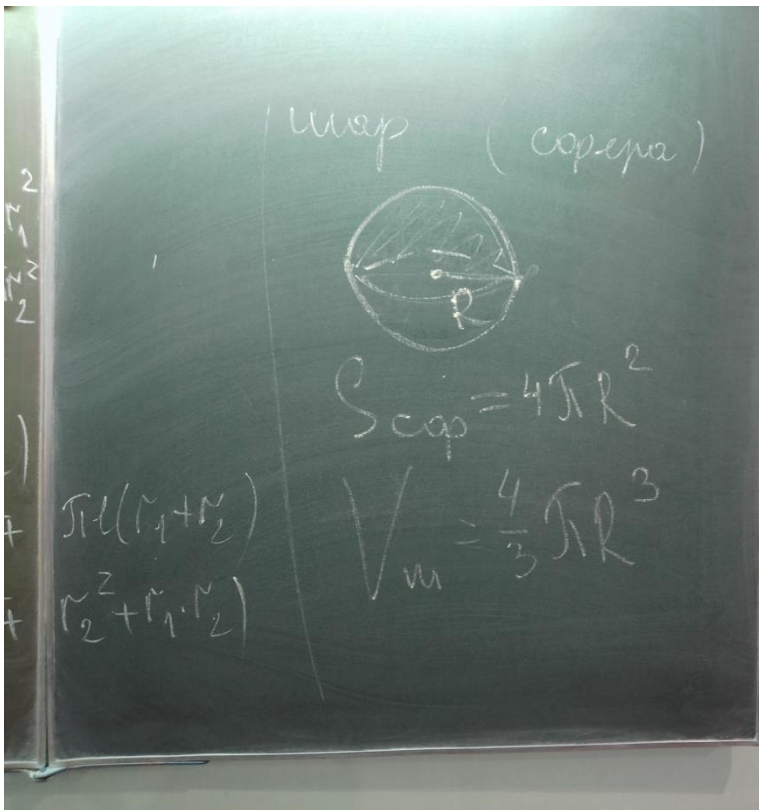 r₁²
r₂²
)
+ πl(r₁+r₂)
+ r₂²+r₁·r₂)
шар (сфера)
R
Sсф=4πR²
Vш=4/3πR³